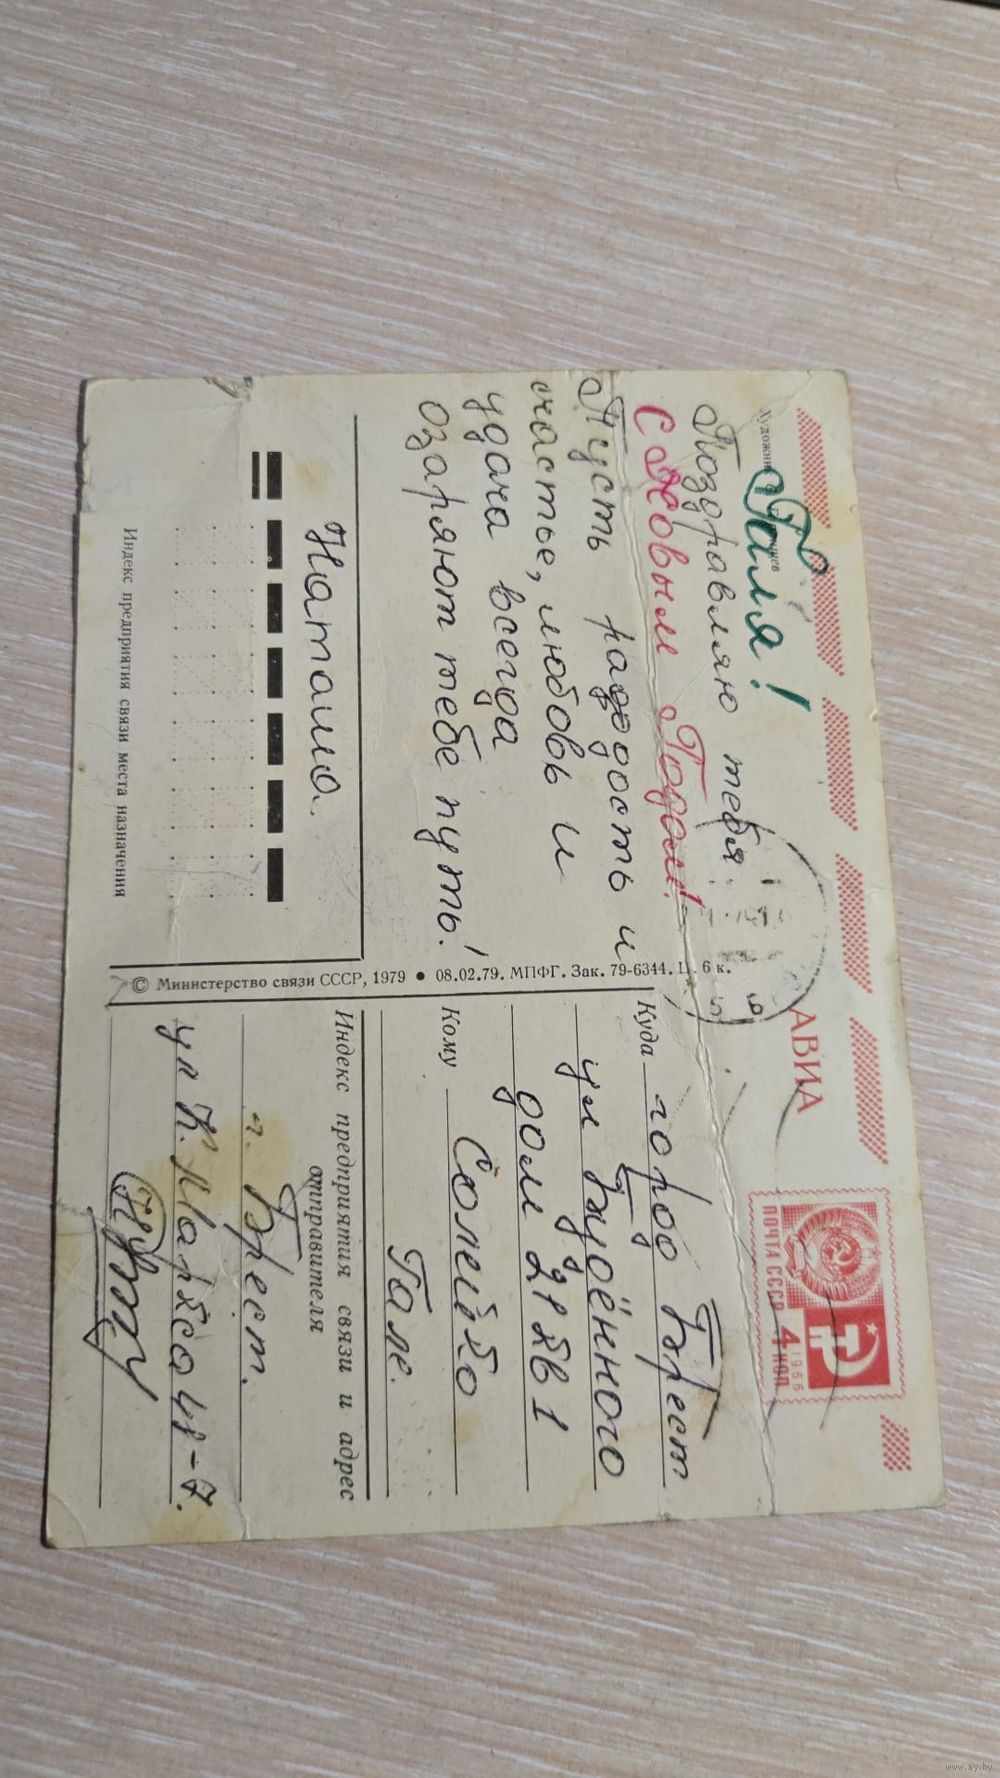 Художник
Галя!
Поздравляю тебя
С Новым Годом!
Пусть радость и
счастье, любовь и
удача всегда
озаряют тебе путь!
Наташа.
Индекс предприятия связи места назначения
© Министерство связи СССР, 1979 • 08.02.79. МПФГ. Зак. 79-6344. Ц. 6 к.
АВИА
ПОЧТА СССР
1966
4 КОП
Куда город Брест
ул Будённого
дом 21 кв 1
Кому Солейко
Гале.
Индекс предприятия связи и адрес
отправителя
г. Брест.
ул К. Маркса 41-7.
www.ay.by